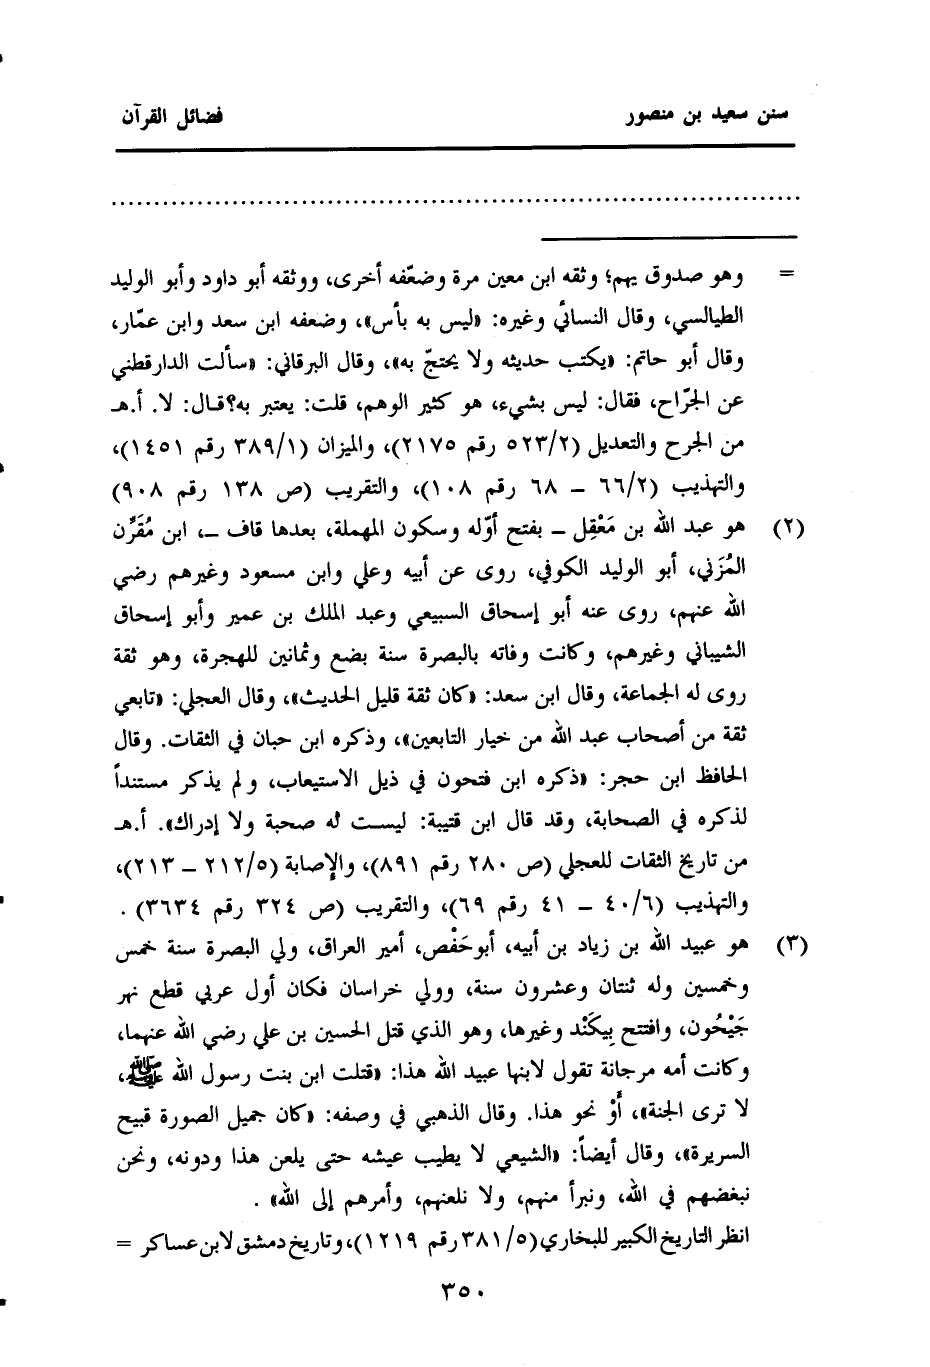 سنن سعيد بن منصور
فضائل القرآن
= وهو صدوق يهم؛ وثقه ابن معين مرة وضعّفه أخرى، ووثقه أبو داود وأبو الوليد
الطيالسي، وقال النسائي وغيره: «ليس به بأس»، وضعفه ابن سعد وابن عمّار،
وقال أبو حاتم: «يكتب حديثه ولا يحتجّ به»، وقال البرقاني: «سألت الدارقطني
عن الجرّاح، فقال: ليس بشيء، هو كثير الوهم، قلت: يعتبر به؟ قال: لا. أ.هـ
من الجرح والتعديل (٥٢٣/٢ رقم ٢١٧٥)، والميزان (٣٨٩/١ رقم ١٤٥١)،
والتهذيب (٦٦/٢ – ٦٨ رقم ١٠٨)، والتقريب (ص ١٣٨ رقم ٩٠٨)
(٢) هو عبد الله بن مَعْقِل – بفتح أوّله وسكون المهملة، بعدها قاف –، ابن مُقَرِّن
المُزَني، أبو الوليد الكوفي، روى عن أبيه وعلي وابن مسعود وغيرهم رضي
الله عنهم، روى عنه أبو إسحاق السبيعي وعبد الملك بن عمير وأبو إسحاق
الشيباني وغيرهم، وكانت وفاته بالبصرة سنة بضع وثمانين للهجرة، وهو ثقة
روى له الجماعة، وقال ابن سعد: «كان ثقة قليل الحديث»، وقال العجلي: «تابعي
ثقة من أصحاب عبد الله من خيار التابعين»، وذكره ابن حبان في الثقات. وقال
الحافظ ابن حجر: «ذكره ابن فتحون في ذيل الاستيعاب، ولم يذكر مستنداً
لذكره في الصحابة، وقد قال ابن قتيبة: ليست له صحبة ولا إدراك». أ.هـ
من تاريخ الثقات للعجلي (ص ٢٨٠ رقم ٨٩١)، والإصابة (٢١٢/٥ – ٢١٣)،
والتهذيب (٤٠/٦ – ٤١ رقم ٦٩)، والتقريب (ص ٣٢٤ رقم ٣٦٣٤) .
(٣) هو عبيد الله بن زياد بن أبيه، أبوحَفْص، أمير العراق، ولي البصرة سنة خمس
وخمسين وله ثنتان وعشرون سنة، وولي خراسان فكان أول عربي قطع نهر
جَيْحُون، وافتتح بِيكَنْد وغيرها، وهو الذي قتل الحسين بن علي رضي الله عنهما،
وكانت أمه مرجانة تقول لابنها عبيد الله هذا: «قتلت ابن بنت رسول الله ﷺ،
لا ترى الجنة»، أَوْ نحو هذا. وقال الذهبي في وصفه: «كان جميل الصورة قبيح
السريرة»، وقال أيضاً: «الشيعي لا يطيب عيشه حتى يلعن هذا ودونه، ونحن
نبغضهم في الله، ونبرأ منهم، ولا نلعنهم، وأمرهم إلى الله» .
انظر التاريخ الكبير للبخاري (٣٨١/٥ رقم ١٢١٩)، وتاريخ دمشق لابن عساكر =
٣٥٠